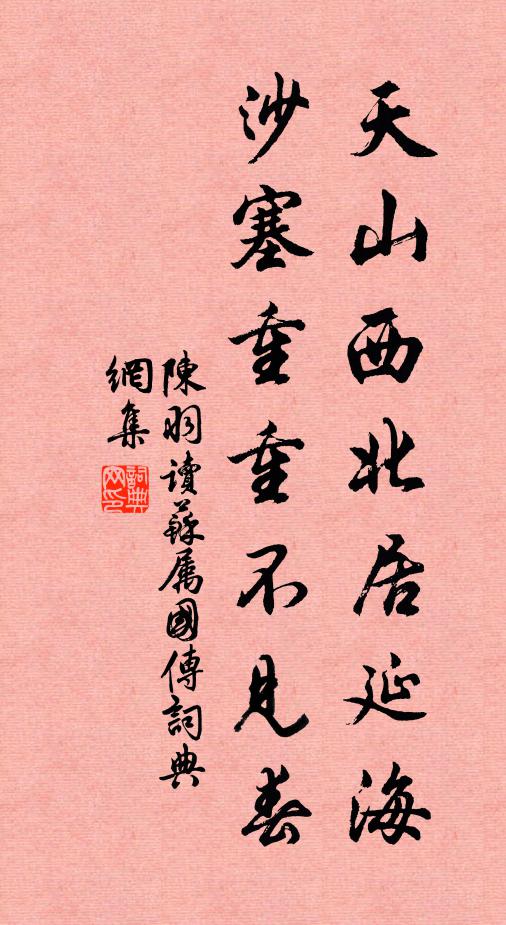 天山西北居延海
沙塞重重不見春
陳羽讀蘇属國傳詞典
網集
詞典網印